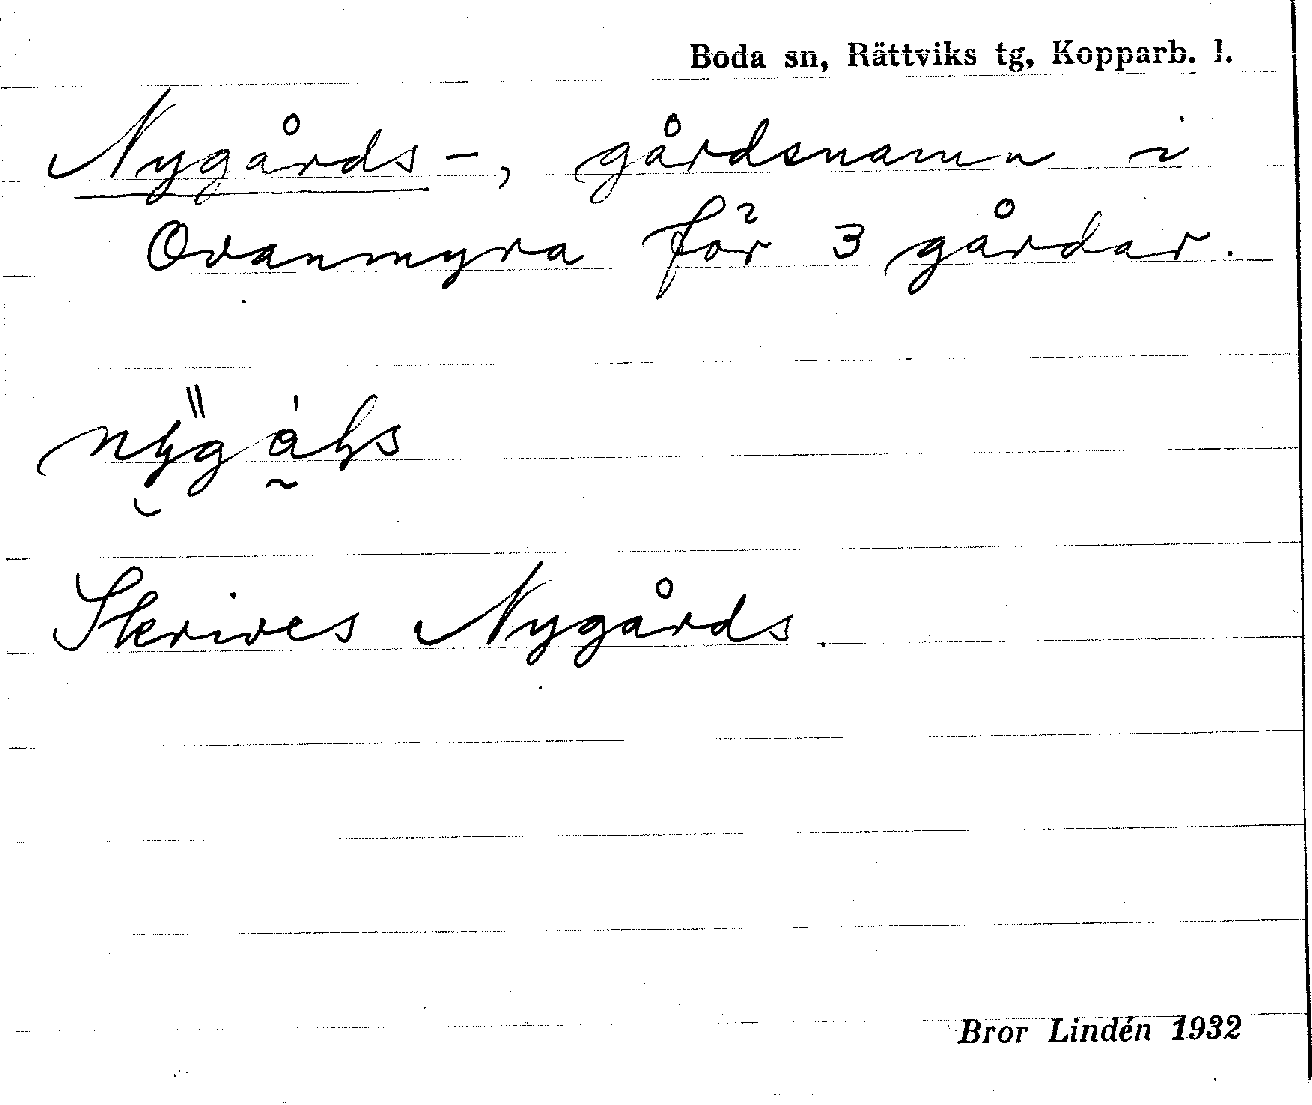 Boda sn, Rättviks tg, Kopparb. l.
Nygårds-, gårdsnamn i
Ovanmyra för 3 gårdar.
Skrives Nygårds.
Bror Lindén 1932